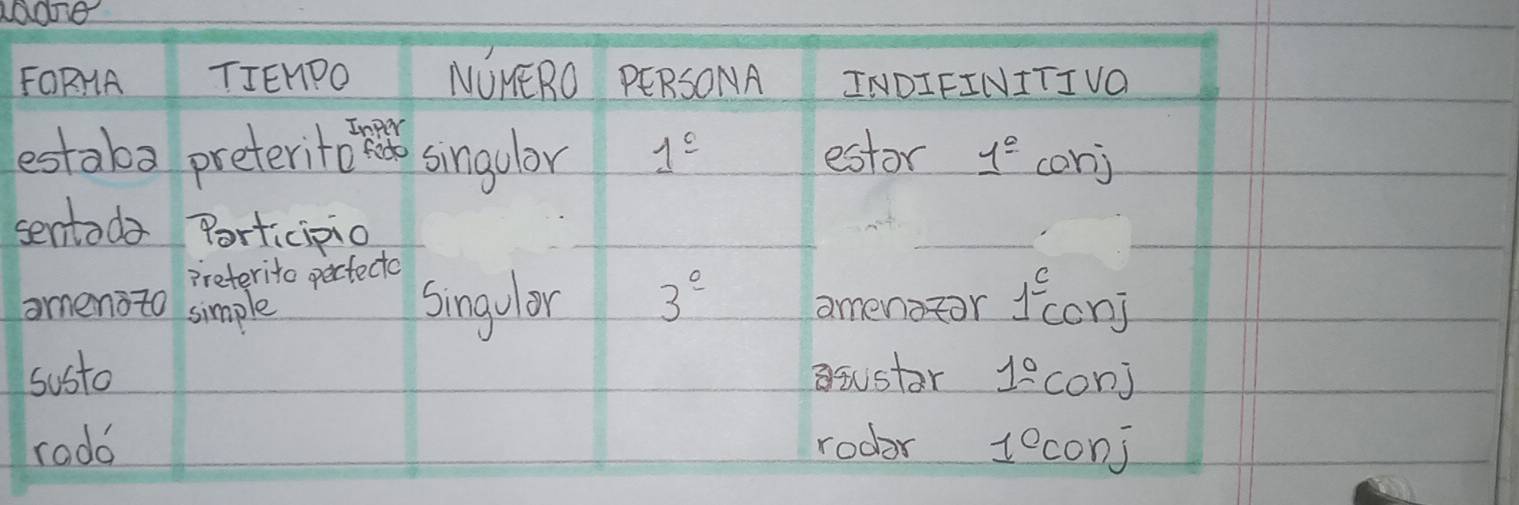 FORMA TIEMPO NÚMERO PERSONA INDIFINITIVO
estaba preterito Inperfecto singular 1º estar 1º conj
sentada Participio
amenazo Preterito perfecto simple Singular 3º amenazar 1º conj
susto asustar 1º conj
rodó rodar 1º conj